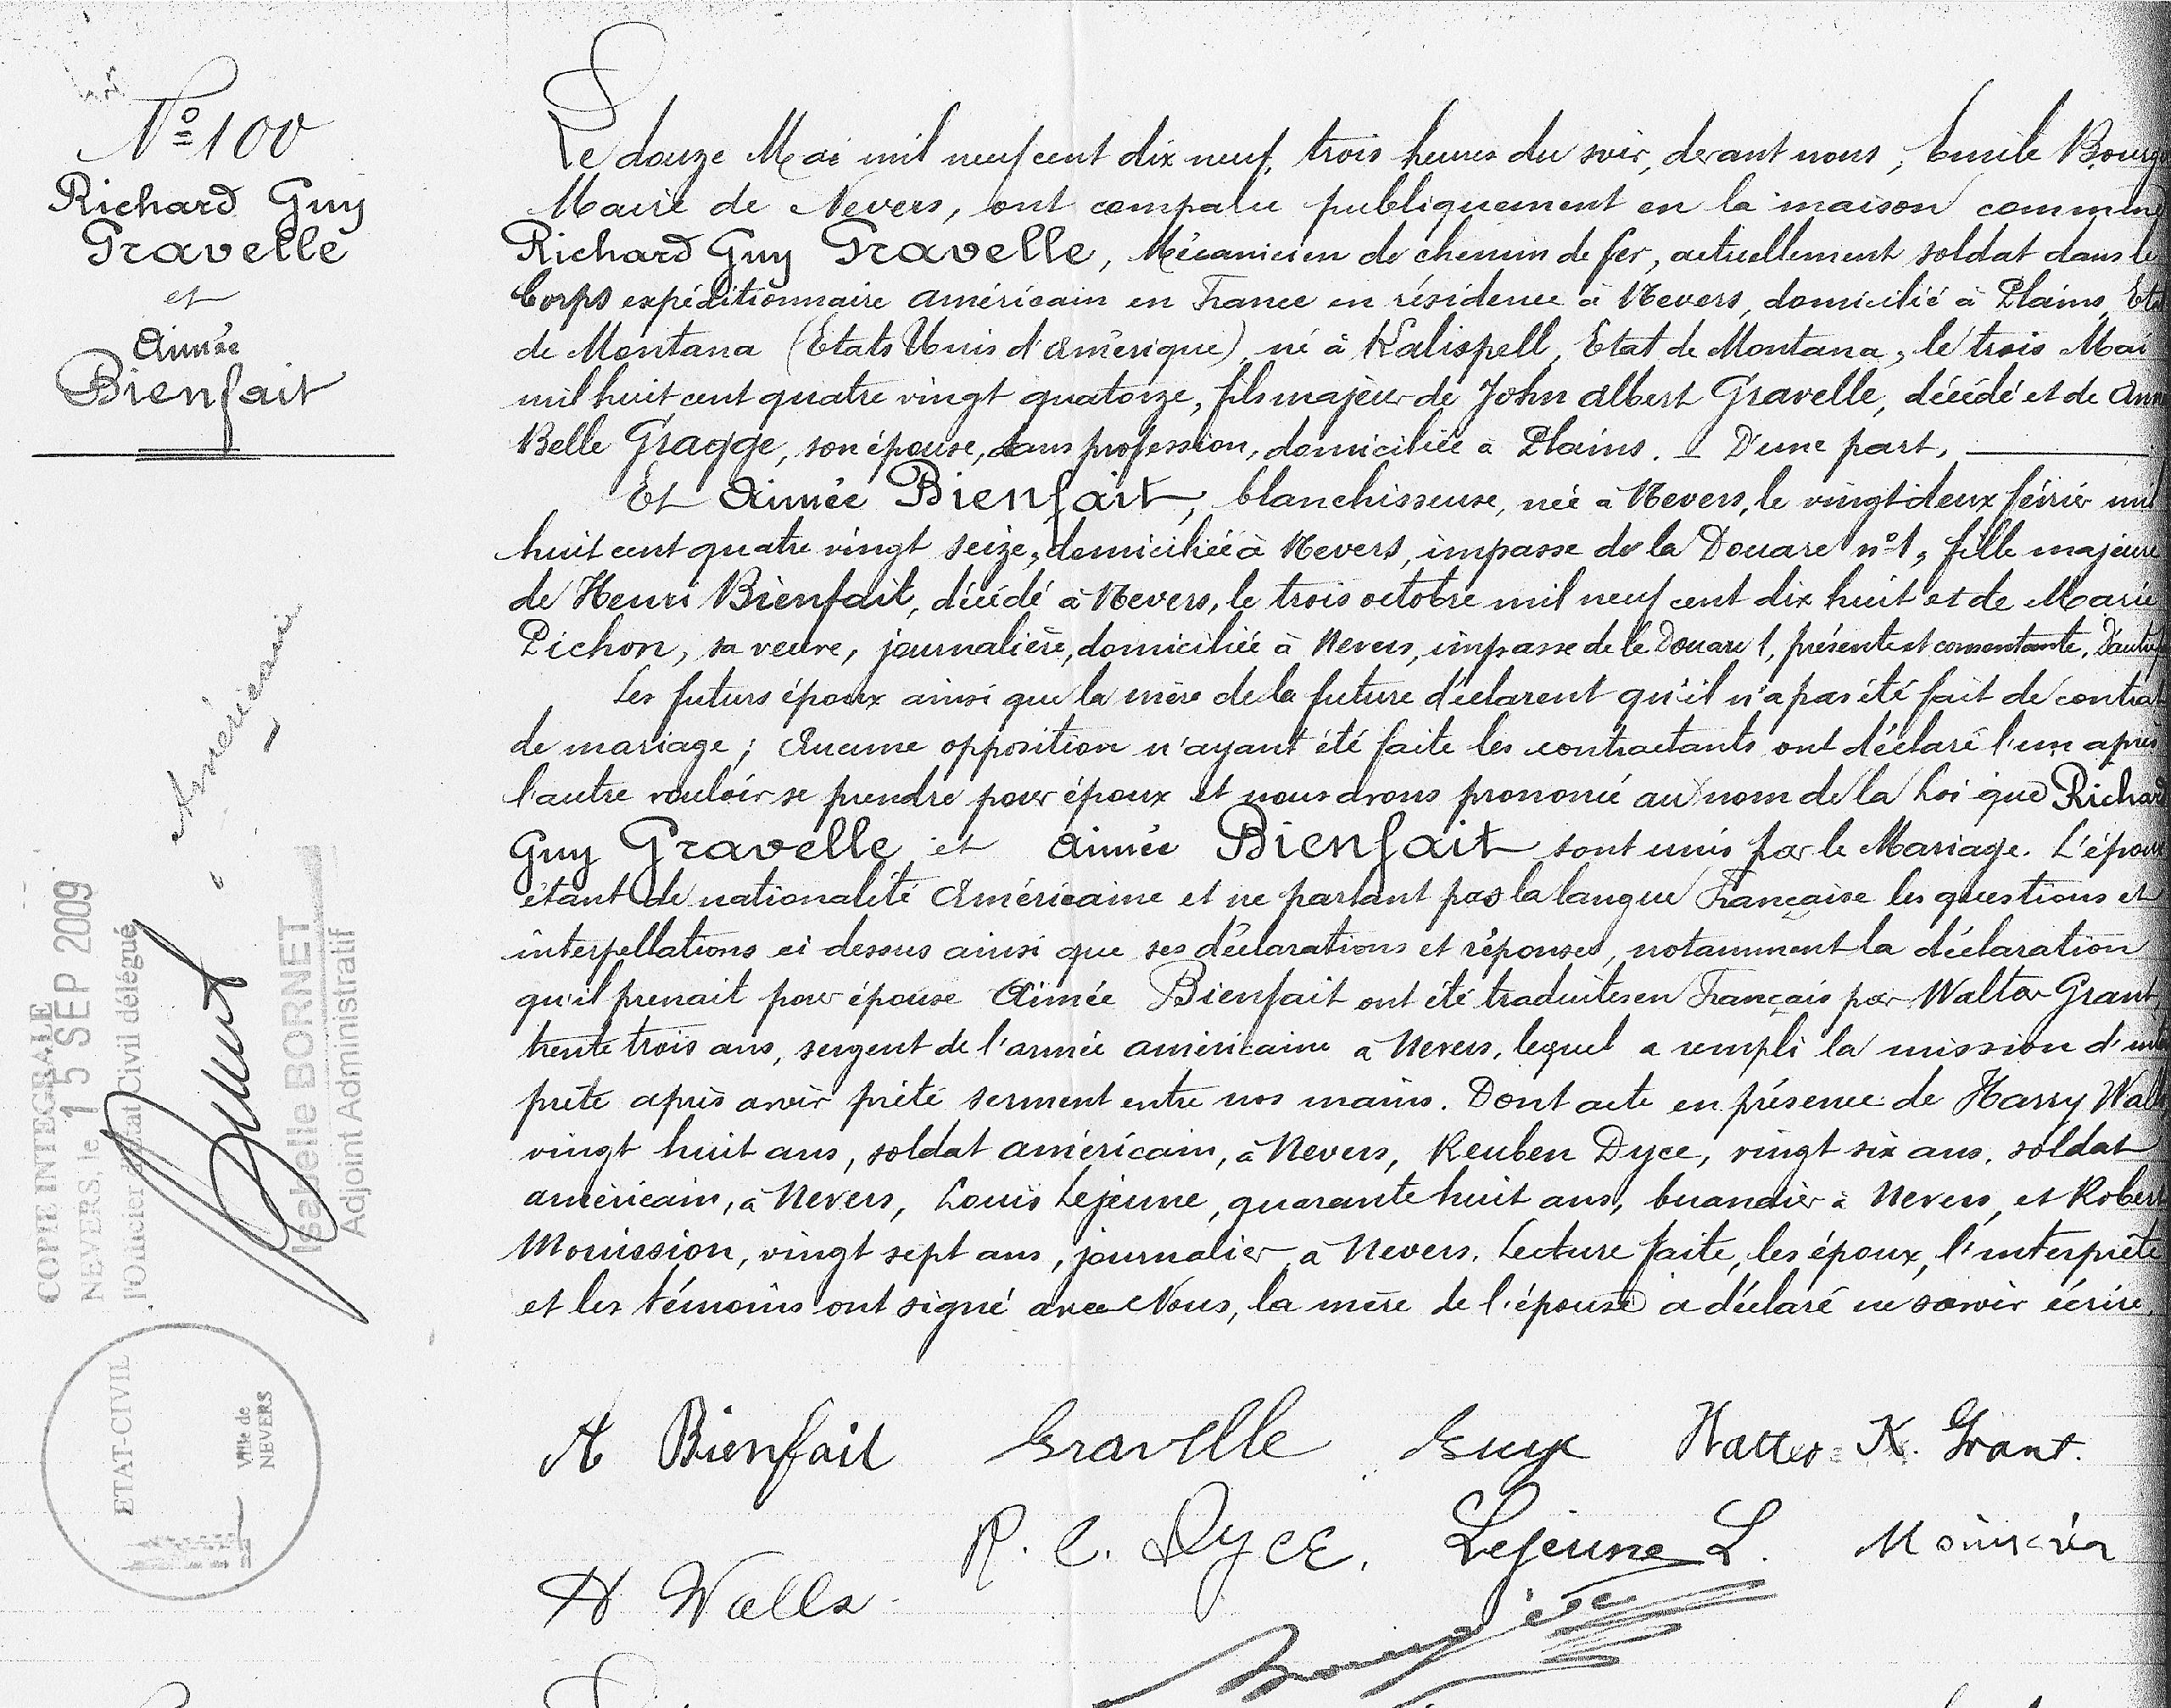 Nº 100
Richard Guy
Gravelle
et
Aimée
Bienfait
Le douze Mai mil neuf cent dix neuf, trois heures du soir, devant nous, Emile
Maire de Nevers, ont comparu publiquement en la maison commune
Richard Guy Gravelle, Mécanicien de chemin de fer, actuellement soldat dans le
Corps expéditionnaire américain en France en résidence à Nevers, domicilié à Plains, Etat
de Montana (Etats Unis d'Amérique), né à Kalispell, Etat de Montana, le trois Mai
mil huit cent quatre vingt quatorze, fils majeur de John Albert Gravelle, décédé et de
Belle Gragge, son épouse, sans profession, domiciliée à Plains. D'une part,
Et Aimée Bienfait, blanchisseuse, née à Nevers, le vingt deux février mil
huit cent quatre vingt seize, domiciliée à Nevers, impasse de la Douare nº 1, fille majeure
de Henri Bienfait, décédé à Nevers, le trois octobre mil neuf cent dix huit et de Marie
Pichon, sa veuve, journalière, domiciliée à Nevers, impasse de la Douare 1, présente et consentante,
Les futurs époux ainsi que la mère de la future déclarent qu'il n'a pas été fait de contrat
de mariage; Aucune opposition n'ayant été faite les contractants ont déclaré l'un après
l'autre vouloir se prendre pour époux et nous avons prononcé au nom de la Loi que Richard
Guy Gravelle et Aimée Bienfait sont unis par le Mariage. L'époux
étant de nationalité Américaine et ne parlant pas la langue Française les questions et
interpellations ci dessus ainsi que ses déclarations et réponses, notamment la déclaration
qu'il prenait pour épouse Aimée Bienfait ont été traduites en Français par Walter Grant,
trente trois ans, sergent de l'armée américaine à Nevers, lequel a rempli la mission d'inter
prète après avoir prêté serment entre nos mains. Dont acte en présence de Harry Walls
vingt huit ans, soldat américain, à Nevers, Reuben Dyce, vingt six ans, soldat
américain, à Nevers, Louis Lejeune, quarante huit ans, buandier à Nevers, et Robert
Monission, vingt sept ans, journalier à Nevers. Lecture faite, les époux, l'interprète
et les témoins ont signé avec Nous, la mère de l'épouse a déclaré ne savoir écrire.
A Bienfait Gravelle Guy Walter K. Grant.
R. C. Dyce. Lejeune L.
H Walls
Américain
COPIE INTEGRALE
NEVERS, le 15 SEP 2009
l'Officier d'Etat Civil délégué,
Isabelle BORNET
Adjoint Administratif
ETAT-CIVIL
Ville de
NEVERS